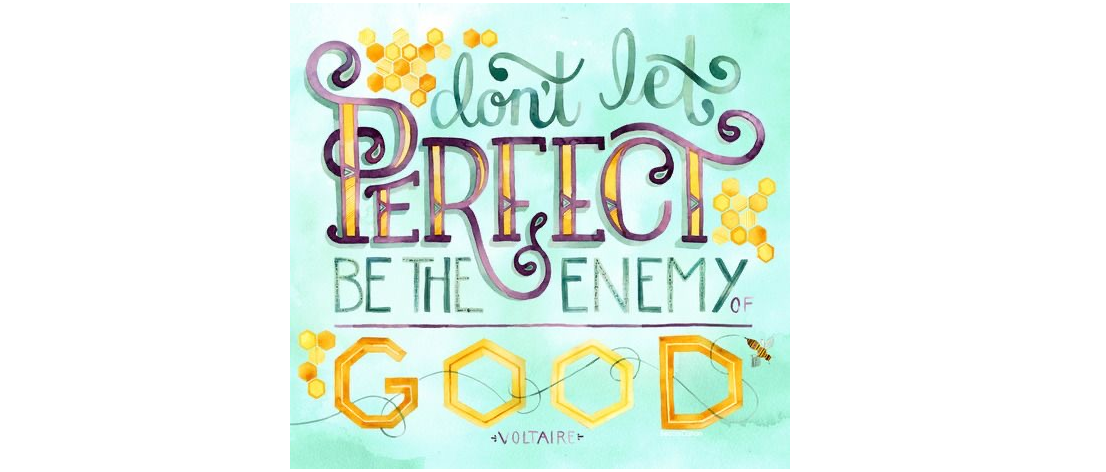 don't let
PERFECT
BE THE ENEMY OF
GOOD
VOLTAIRE